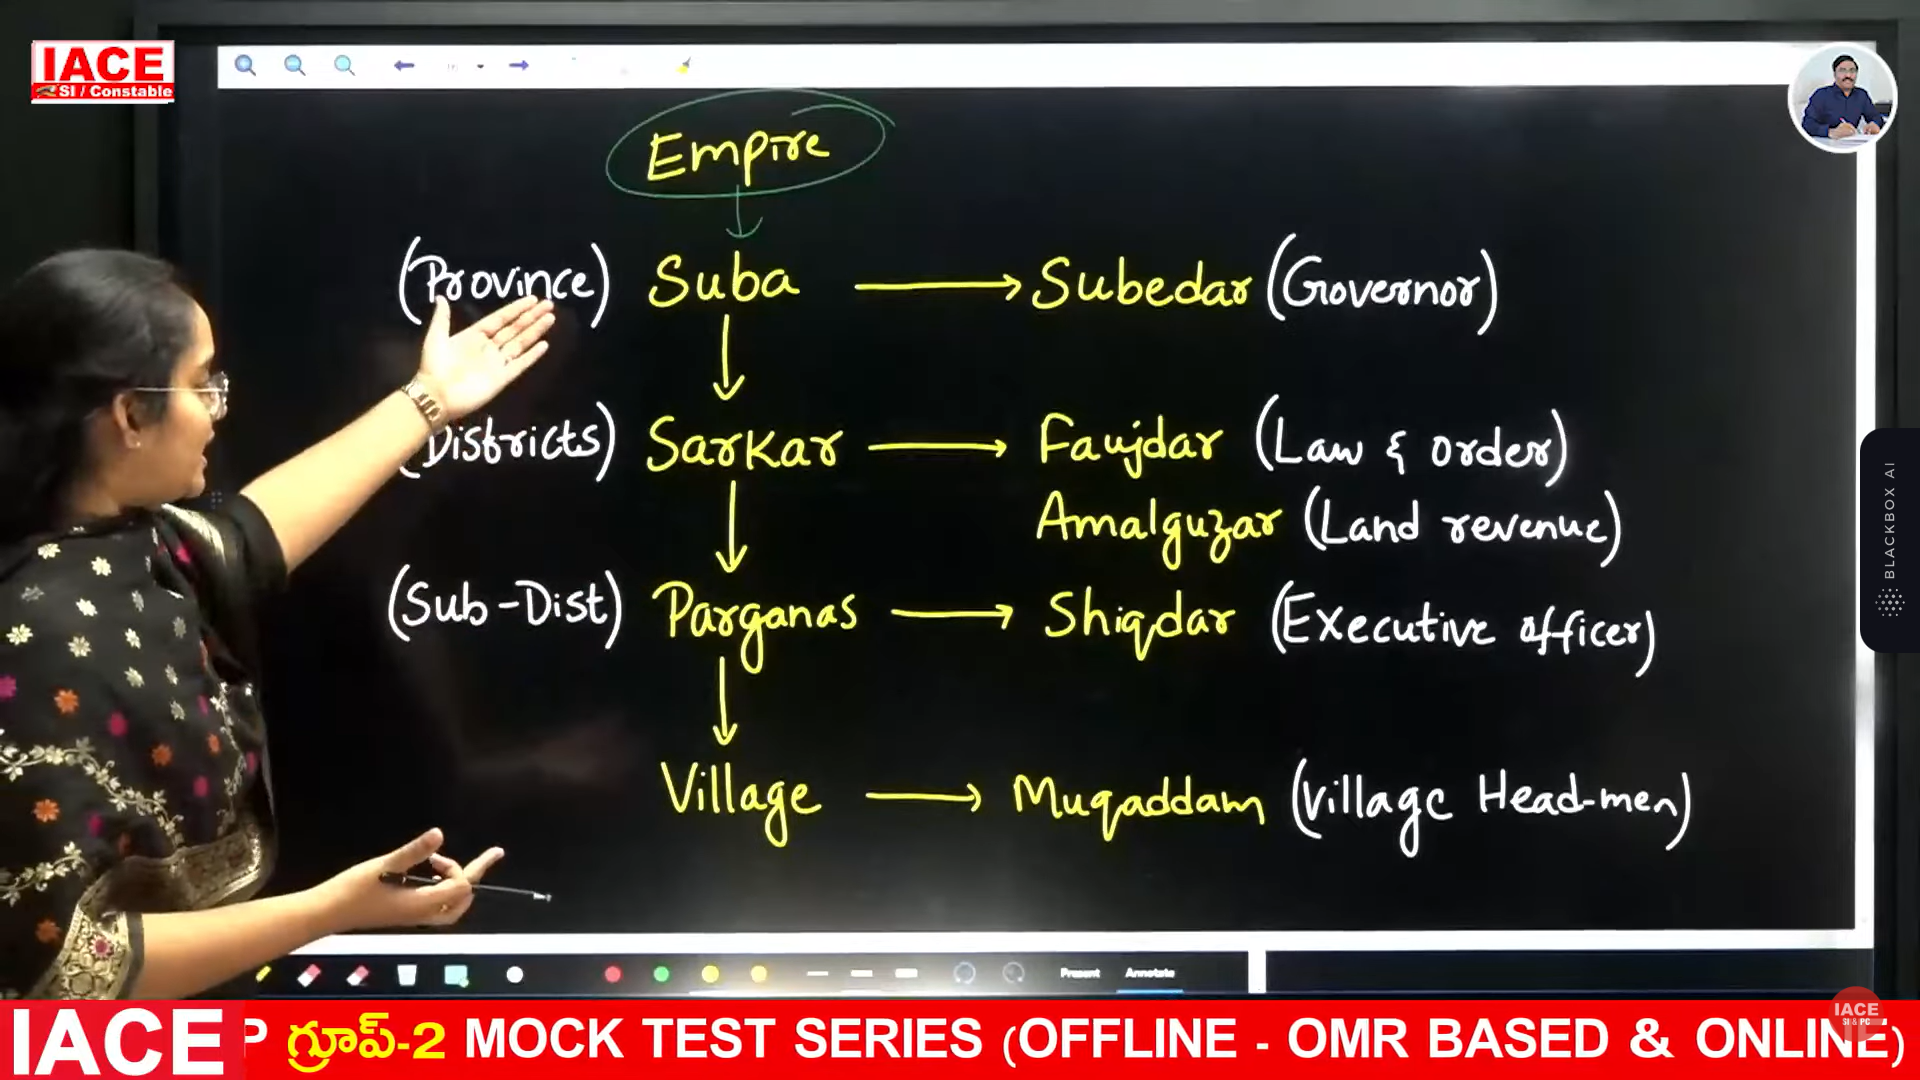 IACE
SI / Constable
Empire
(Province) Suba → Subedar (Governor)
(Districts) Sarkar → Faujdar (Law & order)
Amalguzar (Land revenue)
(Sub-Dist) Parganas → Shiqdar (Executive officer)
Village → Muqaddam (Village Head-men)
BLACKBOX AI
Present Annotate
IACE
SI & PC
IACE P గ్రూప్-2 MOCK TEST SERIES (OFFLINE - OMR BASED & ONLINE)